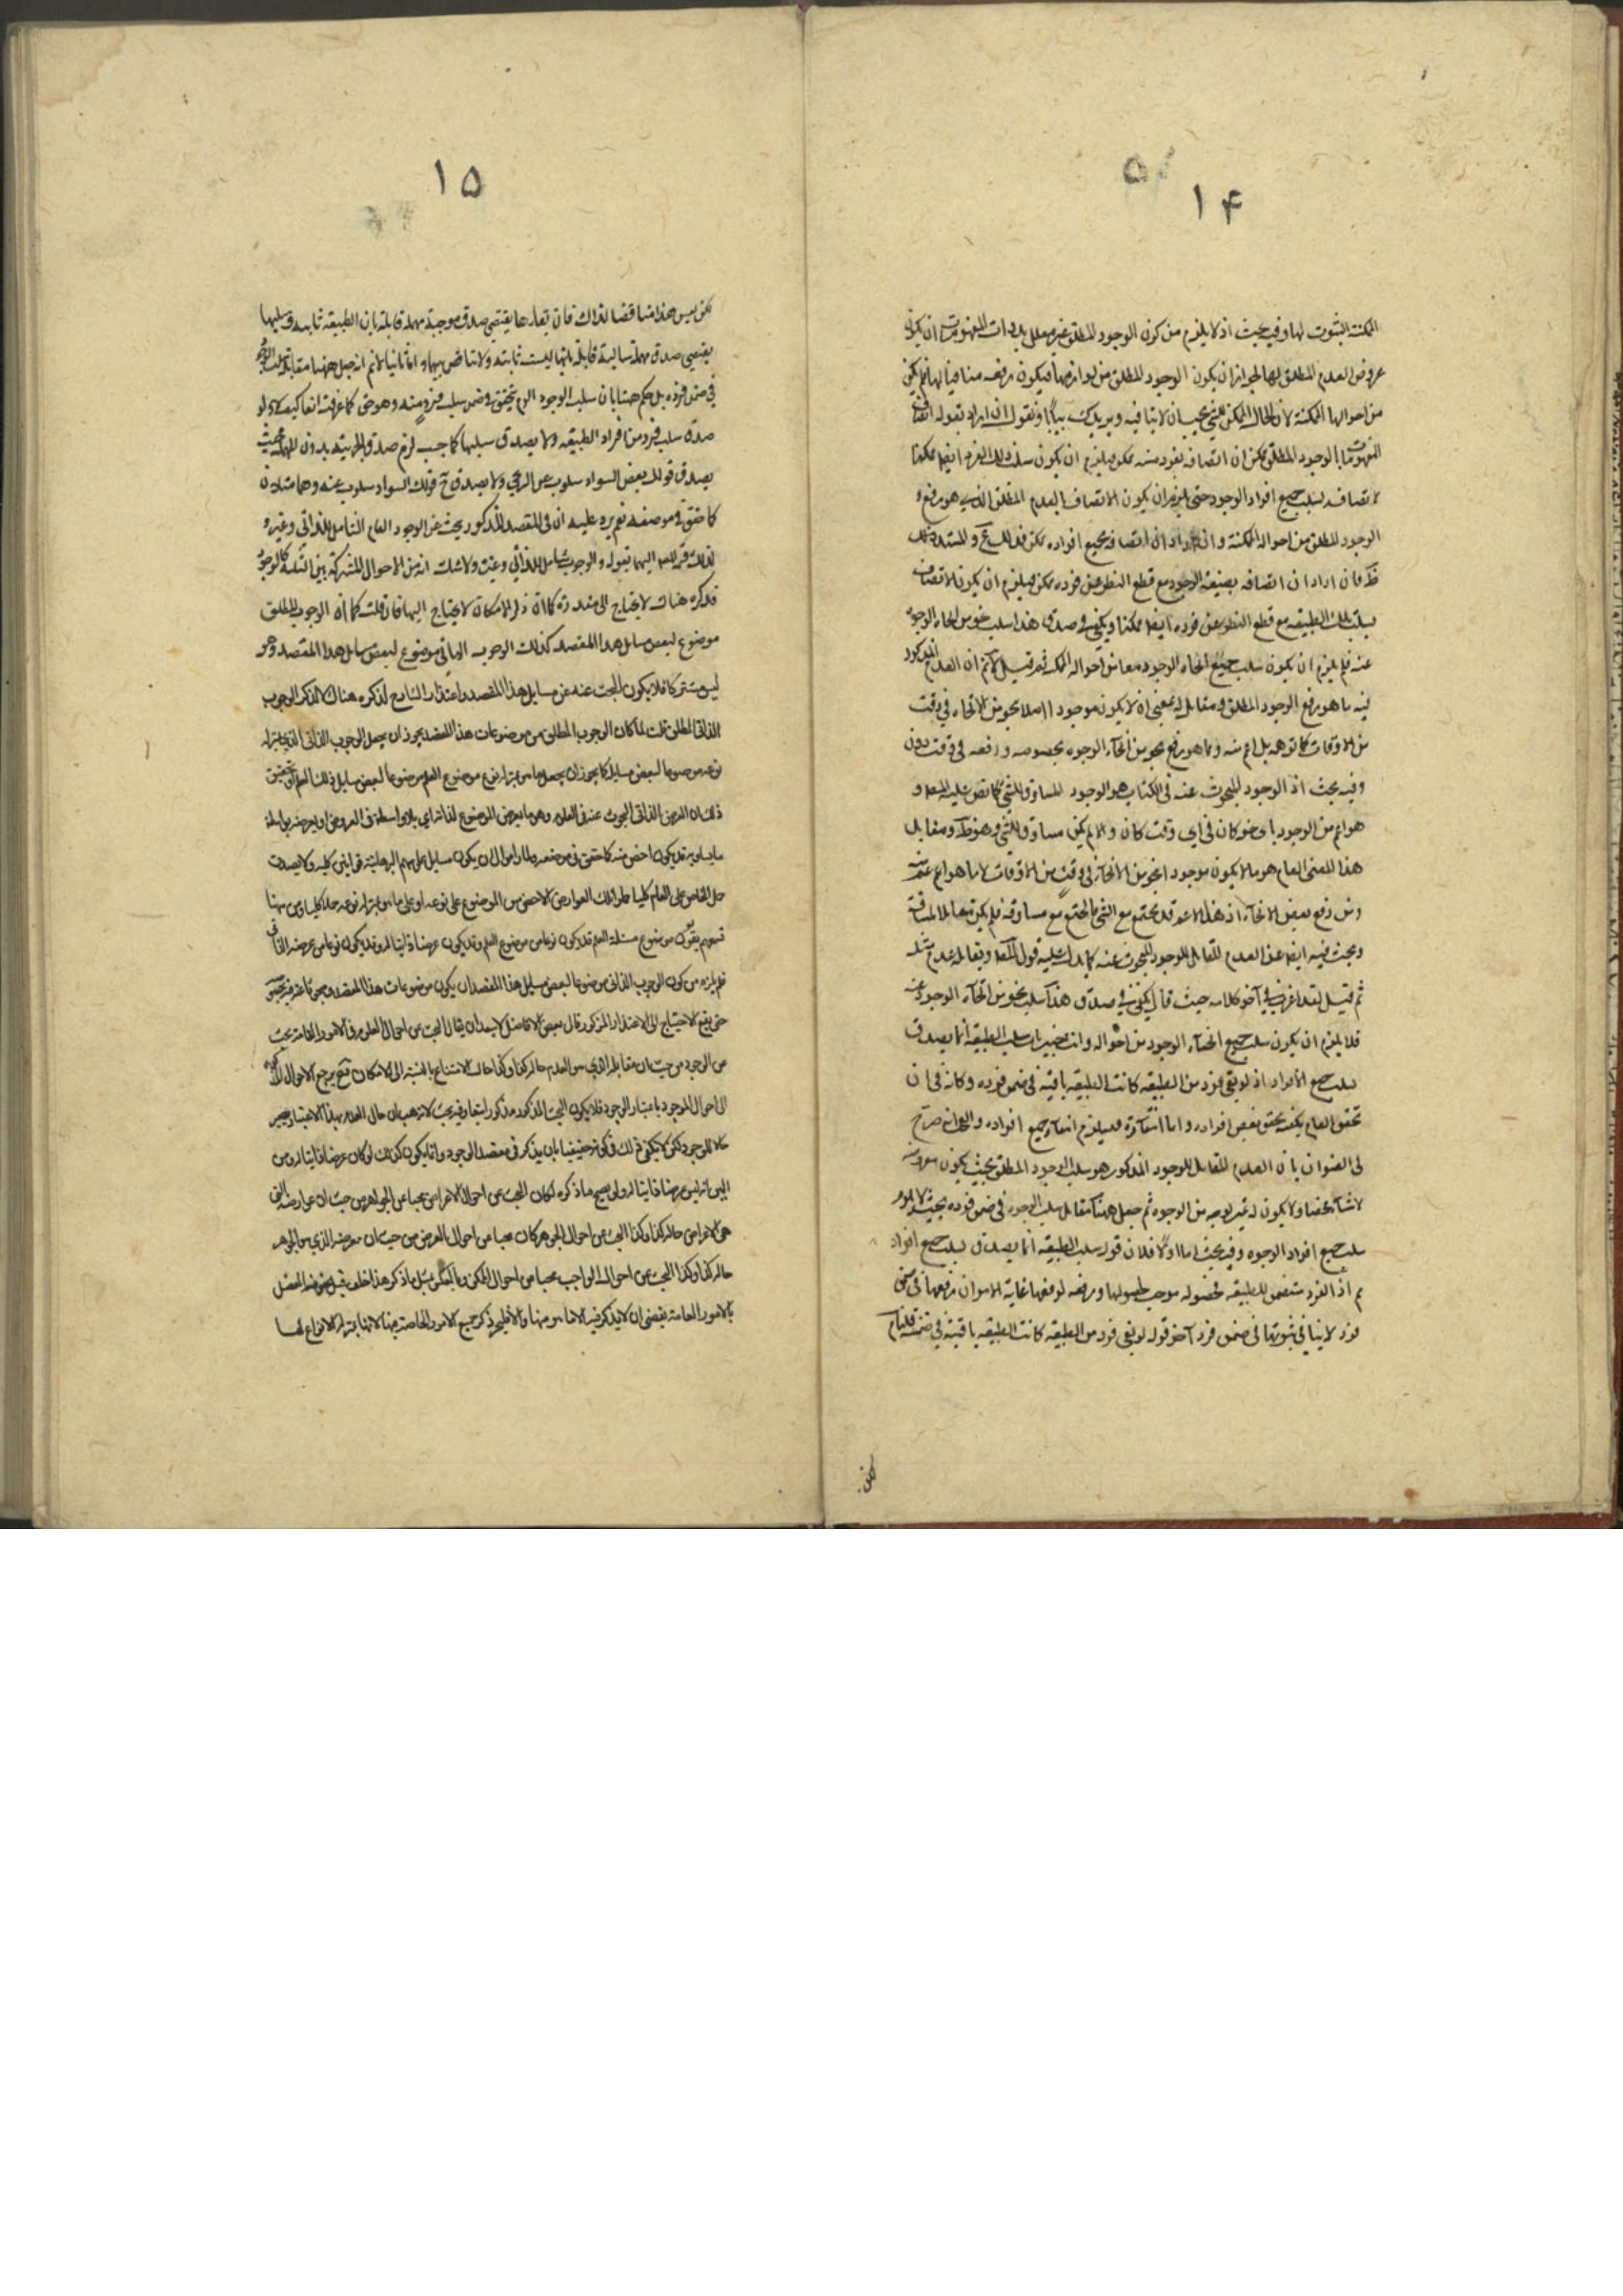 ۱۴
الممكنة الثبوت لها وفيه بحث اذ لا يلزم من كون الوجود المطلق غير معلل بذوات المفهومات ان يكون
عروض العدم المطلق لها لجواز ان يكون الوجود المطلق من لوازمها فيكون رفعه منافيا لها فلم يكن
من احوالها الممكنة لان الحال الممكن للشئ يجب ان لا ينافيه ويزيدك بيانا ونقول ان اراد بقوله اتصاف
المفهومات بالوجود المطلق ممكن ان اتصافه بفرد منه ممكن فيلزم ان يكون سلب ذلك الفرد ايضا ممكنا
لا تصافه بسلب جميع افراد الوجود حتى يلزم ان يكون الاتصاف بالعدم المطلق الذي هو رفع
الوجود المطلق من احواله الممكنة وان اراد ان اتصافه بجميع افراده ممكن فذلك
فان اراد ان اتصافه بطبيعة الوجود مع قطع النظر عن فرده ممكن فيلزم ان يكون الاتصاف
بسلب تلك الطبيعة مع قطع النظر عن فرده ايضا ممكنا ويكفي في صدق هذا سلب نحو من انحاء الوجود
عنه فلم يلزم ان يكون سلب جميع انحاء الوجود معا من احواله الممكنة ثم قيل لا نم ان العدم المذكور
فيه ما هو رفع الوجود المطلق ومقابل له بمعنى ان لا يكون موجودا اصلا بنحو من الانحاء في وقت
من الاوقات كما توهمه بل اعم منه وما هو رفع نحو من انحاء الوجود بخصوصه ورفعه في وقت دون
وفيه بحث اذ الوجود المبحوث عنه في الكتاب هو الوجود المساوق للشئ كما نص عليه المص و
هو اعم من الوجود باي نحو كان في اي وقت كان والا لم يكن مساوقا للشئ وهو ظ ومقابل
هذا المعنى العام هو ما لا يكون موجودا بنحو من الانحاء في وقت من الاوقات لا ما هو اعم منه
ومن رفع بعض الانحاء اذ هذا الاعم قد يجتمع مع الشئ فالمجتمع مع مساوقه فلم يكن مقابلا للمساوق
ويبحث فيه ايضا عن العدم المقابل للوجود المبحوث عنه كما يدل عليه قول المص ويقابله عدم مثله
ثم قيل لقد اعترف في آخر كلامه حيث قال يكفي في صدق هذا سلب نحو من انحاء الوجود عنه
فلا يلزم ان يكون سلب جميع انحاء الوجود من احواله وانت خبير بان سلب الطبيعة انما يصدق
بسلب جميع الافراد اذ لو بقي فرد من الطبيعة كانت الطبيعة باقية في ضمن فرده وكانه في ان
تحقق العام يكفيه تحقق بعض افراده واما انتفاؤه فيستلزم انتفاء جميع افراده والحال انه صرح
في العنوان بان العدم المقابل للوجود المذكور هو سلب الوجود المطلق بحيث يكون معروضه
لا شيئا محضا ولا يكون له غير لوجه من الوجوه ثم جعل ههنا مقابل سلب الوجود في ضمن فرده بحيث لا يلزم
سلب جميع افراد الوجود وفيه بحث اما اولا فلان قوله سلب الطبيعة انما يصدق بسلب جميع افراد
م اذ الفرد متضمن للطبيعة فحصوله موجب لحصولها ورفعه لرفعها غاية الامر ان رفعها في ضمن
فرد لا ينافي ثبوتها في ضمن فرد آخر قوله لو بقي فرد من الطبيعة كانت الطبيعة باقية في ضمنه قلنا نعم
لكن
۱۵
لكن ليس هذا مناقضا لذاك فان بقاءها يقتضي صدق موجبة مهملة قابلة بان الطبيعة ثابتة وسلبها
يقتضي صدق مهملة سالبة قابلة بانها ليست ثابتة ولا تناقض بينهما واما ثانيا لا نم انه جعل ههنا مقابله سلب الوجود
في ضمن فرده بل حكم ههنا بان سلب الوجود يتحقق في ضمن سلب فرد منه وهو حق كما عرفت انفا كيف لا ولو
صدق سلب فرد من افراد الطبيعة ولا يصدق سلبها كما حسب لزم صدق الجزئية بدون المهملة بحيث
يصدق قولك بعض السواد مسلوب عن الرومي ولا يصدق ح قولك السواد مسلوب عنه وهما متلازمان
كما حقق في موضعه نعم يرد عليه ان في المقصد المذكور يبحث عن الوجود العام الشامل للذاتي وغيره
قد ذكره هناك لا يحتاج الى معذرة كما ان ذكر الامكان لا يحتاج اليها فان قلت كما ان الوجوب المطلق
موضوع لبعض مسائل هذا المقصد كذلك الوجوب الذاتي موضوع لبعض مسائل هذا المقصد وهو
ليس مشتركا فلا يكون البحث عنه من مسائل هذا المقصد واعتذار الشارح لذكره هناك لا لذكر الوجوب
الذاتي المطلق قلت لما كان الوجوب المطلق من موضوعات هذا المقصد يجوز ان يجعل الوجوب الذاتي الذي بمنزلة
نوعه موضوعا لبعض مسائله كما يجوز ان يجعل ما هو بمنزلة نوع موضوع العلم موضوعا لبعض مسائل ذلك العلم
ذلك ان العرض الذاتي المبحوث عنه في العلوم وهو ما يعرض الموضوع لذاته اي بلا واسطة في العروض او يعرضه بواسطة
ما يساويه قد يكون اخص منه كما حقق في موضعه
حمل الخاص على العام كليا حملوا تلك العوارض الاخص من الموضوع على نوعه او على ما هو بمنزلة نوعه حملا كليا ومن ههنا
تسمعهم يقولون موضوع مسئلة العلم قد يكون نوعا من موضوع العلم وقد يكون عرضا ذاتيا له وقد يكون نوعا من عرضه الذاتي
فلم يلزم من كون الوجوب الذاتي موضوعا لبعض مسائل هذا المقصد ان يكون من موضوعات هذا المقصد
حتى يقع الاحتياج الى الاعتذار المذكور قال بعض الافاضل لا يبعد ان يقال البحث عن احوال المعدوم في الامور العامة بحث
عن الوجود من حيث ان مقابله الذي هو العدم حاله كذا وكذا حال الامتناع بالنسبة الى الامكان فح يرجع الاحوال
الى احوال الموجود باعتبار الوجود فلا يكون البحث المذكور مذكورا تبعا وفيه بحث لانه هب ان حال العدم بهذا الاعتبار يصير
حالا للموجود لكن لا يكفي ذلك في كونه حقيقيا بان يذكر في مقصد الوجود وانما يكون كذلك لو كان عرضا ذاتيا له ومن
البين انه ليس عرضا ذاتيا له ولو صح ما ذكره لكان البحث عن احوال الاعراض بحثا عن الجواهر من حيث ان عوارضه التي
هي الاعراض حاله كذا وكذا البحث عن احوال الجوهر كان بحثا عن احوال العرض من حيث ان معروضه الذي هو الجوهر
حاله كذا وكذا البحث عن احوال الواجب بحثا عن احوال الممكن وبالعكس بمثل ما ذكر هذا خلف
بالامور العامة يقتضي ان لا يذكر فيه الا ما هو منها والا فليجز ذكر جميع الامور الخاصة ههنا لانها بمنزلة الانواع لها